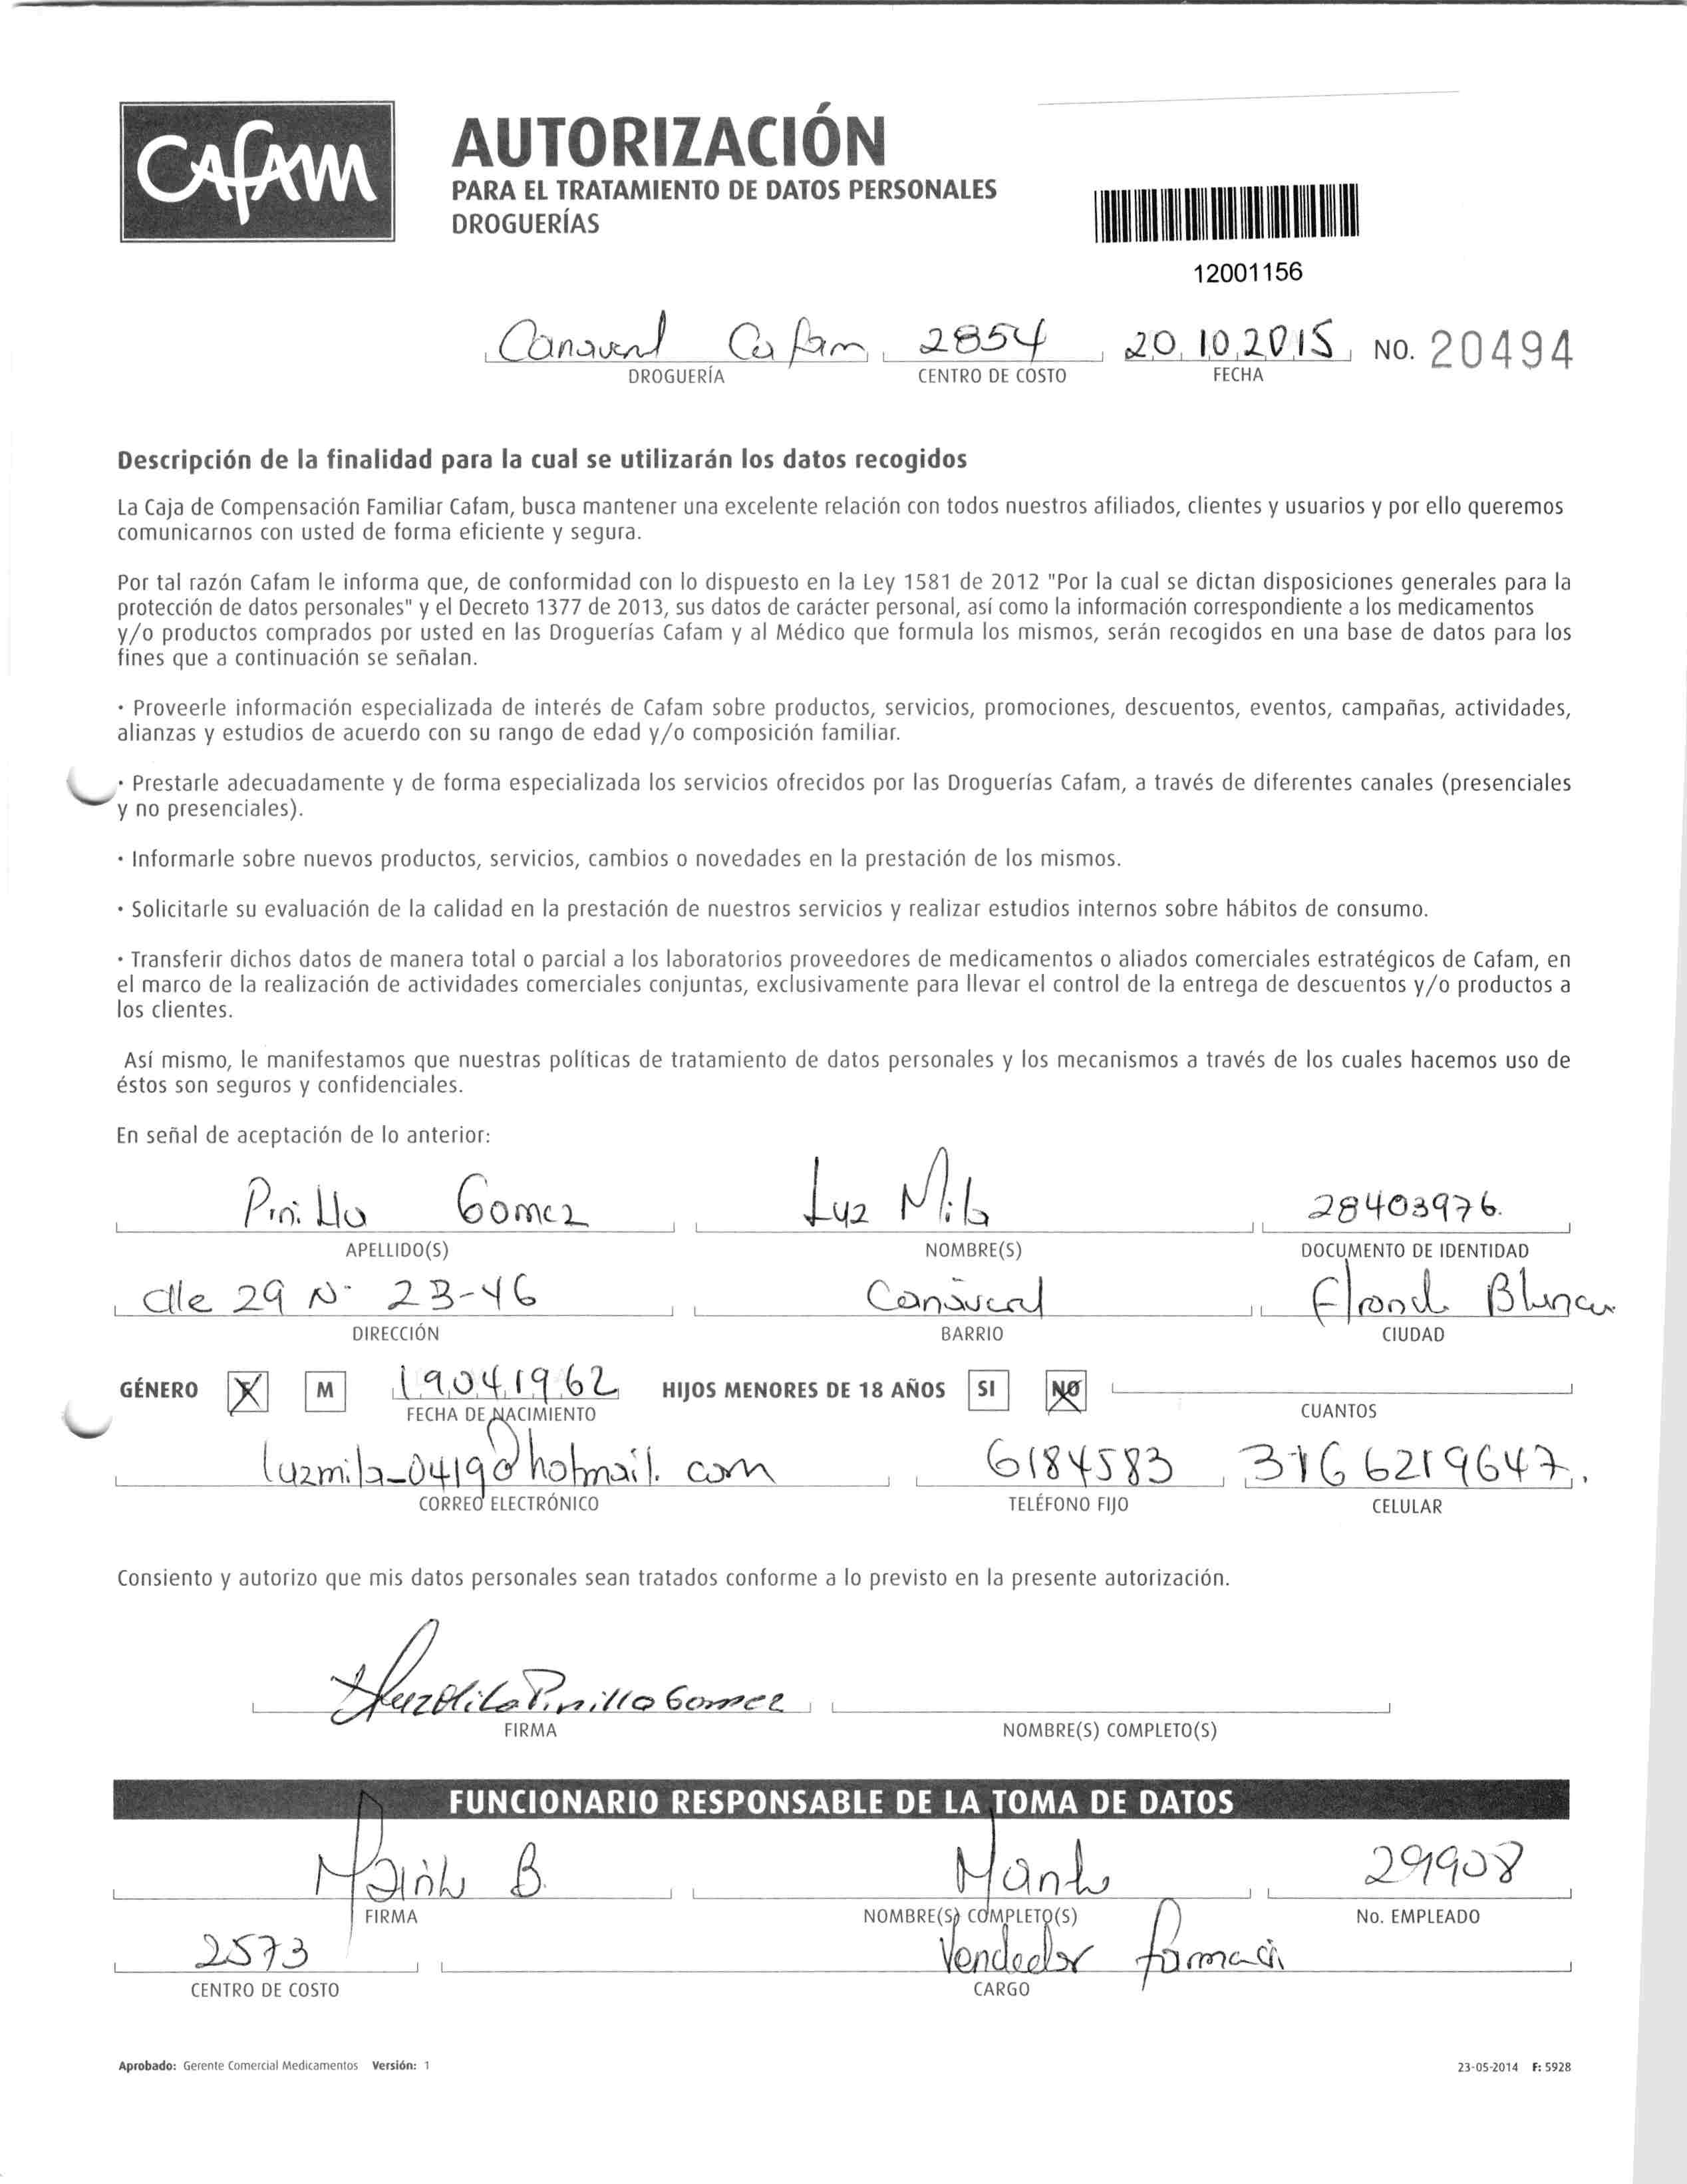 Cafam
AUTORIZACIÓN
PARA EL TRATAMIENTO DE DATOS PERSONALES
DROGUERÍAS
12001156
Canaveral Cafam 2854 20 10 2015 NO. 20494
DROGUERÍA CENTRO DE COSTO FECHA
Descripción de la finalidad para la cual se utilizarán los datos recogidos
La Caja de Compensación Familiar Cafam, busca mantener una excelente relación con todos nuestros afiliados, clientes y usuarios y por ello queremos
comunicarnos con usted de forma eficiente y segura.
Por tal razón Cafam le informa que, de conformidad con lo dispuesto en la Ley 1581 de 2012 "Por la cual se dictan disposiciones generales para la
protección de datos personales" y el Decreto 1377 de 2013, sus datos de carácter personal, así como la información correspondiente a los medicamentos
y/o productos comprados por usted en las Droguerías Cafam y al Médico que formula los mismos, serán recogidos en una base de datos para los
fines que a continuación se señalan.
· Proveerle información especializada de interés de Cafam sobre productos, servicios, promociones, descuentos, eventos, campañas, actividades,
alianzas y estudios de acuerdo con su rango de edad y/o composición familiar.
· Prestarle adecuadamente y de forma especializada los servicios ofrecidos por las Droguerías Cafam, a través de diferentes canales (presenciales
y no presenciales).
· Informarle sobre nuevos productos, servicios, cambios o novedades en la prestación de los mismos.
· Solicitarle su evaluación de la calidad en la prestación de nuestros servicios y realizar estudios internos sobre hábitos de consumo.
· Transferir dichos datos de manera total o parcial a los laboratorios proveedores de medicamentos o aliados comerciales estratégicos de Cafam, en
el marco de la realización de actividades comerciales conjuntas, exclusivamente para llevar el control de la entrega de descuentos y/o productos a
los clientes.
Así mismo, le manifestamos que nuestras políticas de tratamiento de datos personales y los mecanismos a través de los cuales hacemos uso de
éstos son seguros y confidenciales.
En señal de aceptación de lo anterior:
Pinilla Gomez Luz Mila 28403976.
APELLIDO(S) NOMBRE(S) DOCUMENTO DE IDENTIDAD
Clle 29 N- 23-46 Cañaveral Florida Blanca
DIRECCIÓN BARRIO CIUDAD
GÉNERO X M 19 04 1962 HIJOS MENORES DE 18 AÑOS SI NO
FECHA DE NACIMIENTO CUANTOS
luzmila_0419@hotmail.com 6184583 3166219647.
CORREO ELECTRÓNICO TELÉFONO FIJO CELULAR
Consiento y autorizo que mis datos personales sean tratados conforme a lo previsto en la presente autorización.
Luz Mila Pinilla Gomez
FIRMA NOMBRE(S) COMPLETO(S)
FUNCIONARIO RESPONSABLE DE LA TOMA DE DATOS
B. 29908
FIRMA NOMBRE(S) COMPLETO(S) No. EMPLEADO
2573 Vendedor
CENTRO DE COSTO CARGO
Aprobado: Gerente Comercial Medicamentos Versión: 1 23-05-2014 F: 5928